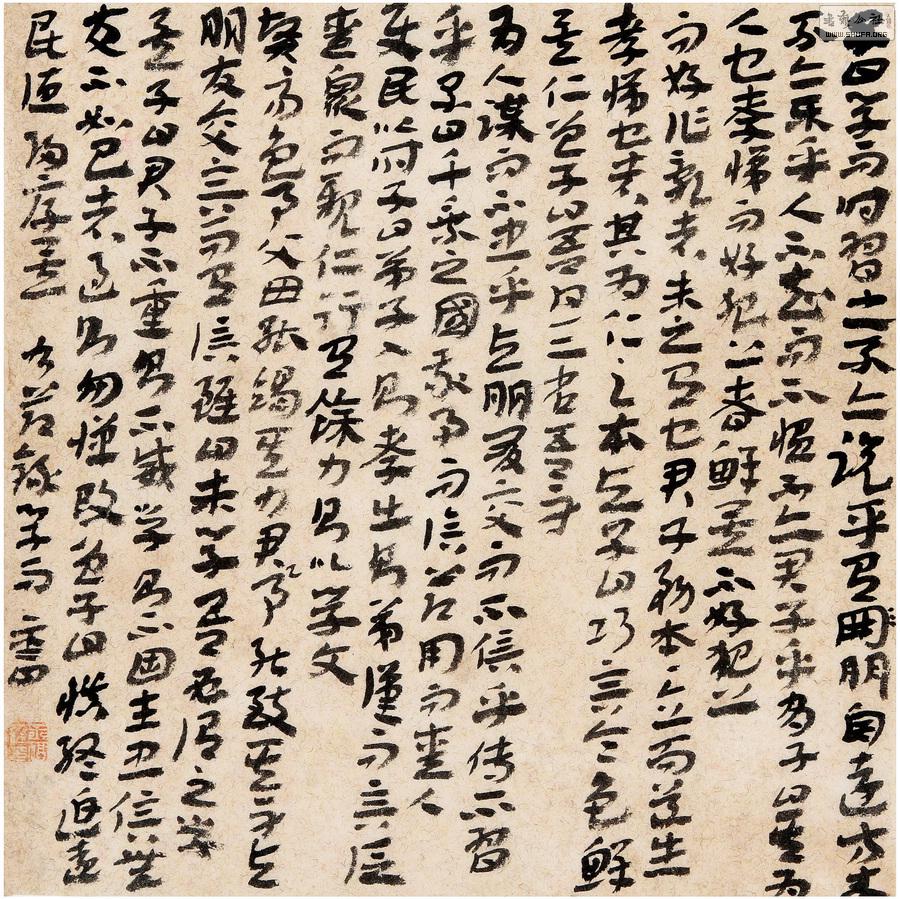 子曰學而時習之不亦說乎有朋自遠方來
不亦樂乎人不知而不慍不亦君子乎有子曰其為
人也孝悌而好犯上者鮮矣不好犯上
而好作亂者未之有也君子務本本立而道生
孝悌也者其為仁之本與子曰巧言令色鮮
矣仁曾子曰吾日三省吾身
為人謀而不忠乎與朋友交而不信乎傳不習
乎子曰千乘之國敬事而信節用而愛人
使民以時子曰弟子入則孝出則弟謹而
愛眾而親仁行有餘力則以學文
賢易色事父母能竭其力君事能致其身與
朋友交言而有信雖曰未學吾必謂之學
矣子曰君子不重則不威學則不固主忠信無
友不如己者過則勿憚改曾子曰慎終追遠
民德歸厚矣 右節錄學而
WWW.SHUFA.ORG